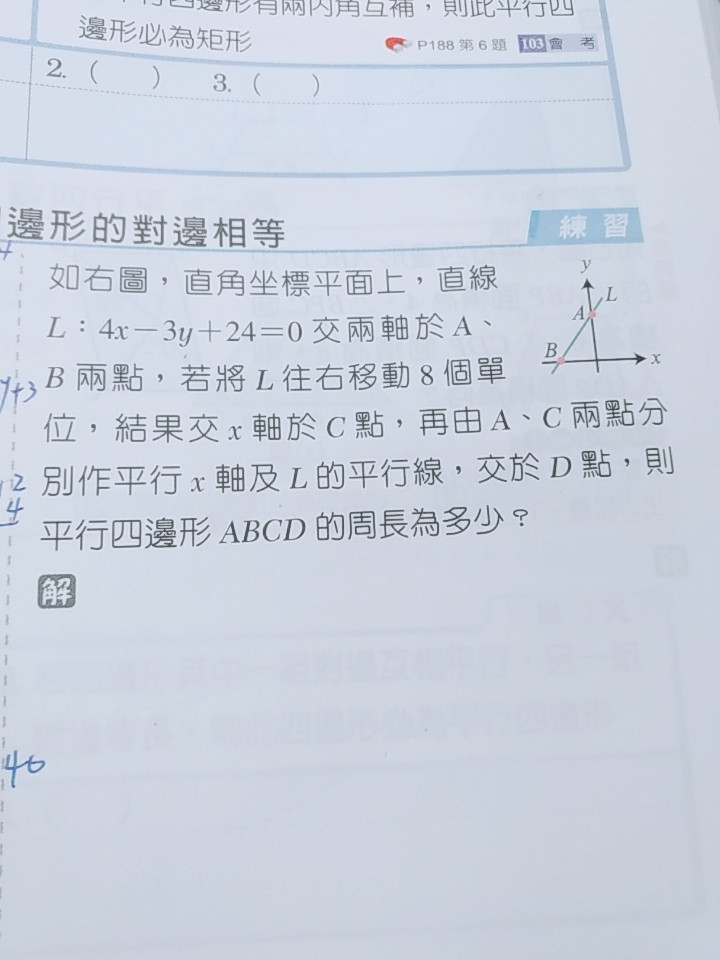 平行四邊形有兩內角互補，則此平行四
邊形必為矩形
P188 第 6 題 103 會 考
2.（ ） 3.（ ）
邊形的對邊相等
練 習
如右圖，直角坐標平面上，直線
L：4x－3y＋24＝0 交兩軸於 A、
B 兩點，若將 L 往右移動 8 個單
位，結果交 x 軸於 C 點，再由 A、C 兩點分
別作平行 x 軸及 L 的平行線，交於 D 點，則
平行四邊形 ABCD 的周長為多少？
y
L
A
B
x
解
y+3
2
4
40